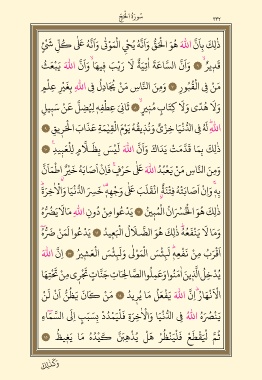 سُورَةُ الْحَجِّ
٣٣٢
ذٰلِكَ بِاَنَّ اللّٰهَ هُوَ الْحَقُّ وَاَنَّهُ يُحْيِ الْمَوْتٰى وَاَنَّهُ عَلٰى كُلِّ شَيْءٍ
قَدِيرٌ ۞ وَاَنَّ السَّاعَةَ اٰتِيَةٌ لَا رَيْبَ فِيهَا وَاَنَّ اللّٰهَ يَبْعَثُ
مَنْ فِي الْقُبُورِ ۞ وَمِنَ النَّاسِ مَنْ يُجَادِلُ فِي اللّٰهِ بِغَيْرِ عِلْمٍ
وَلَا هُدًى وَلَا كِتَابٍ مُنِيرٍ ۞ ثَانِيَ عِطْفِهِ لِيُضِلَّ عَنْ سَبِيلِ
اللّٰهِ لَهُ فِي الدُّنْيَا خِزْيٌ وَنُذِيقُهُ يَوْمَ الْقِيٰمَةِ عَذَابَ الْحَرِيقِ ۞
ذٰلِكَ بِمَا قَدَّمَتْ يَدَاكَ وَاَنَّ اللّٰهَ لَيْسَ بِظَلَّامٍ لِلْعَبِيدِ ۞
وَمِنَ النَّاسِ مَنْ يَعْبُدُ اللّٰهَ عَلٰى حَرْفٍ فَاِنْ اَصَابَهُ خَيْرٌ اطْمَاَنَّ
بِهِ وَاِنْ اَصَابَتْهُ فِتْنَةٌ انْقَلَبَ عَلٰى وَجْهِهِ خَسِرَ الدُّنْيَا وَالْاٰخِرَةَ
ذٰلِكَ هُوَ الْخُسْرَانُ الْمُبِينُ ۞ يَدْعُوا مِنْ دُونِ اللّٰهِ مَا لَا يَضُرُّهُ
وَمَا لَا يَنْفَعُهُ ذٰلِكَ هُوَ الضَّلَالُ الْبَعِيدُ ۞ يَدْعُوا لَمَنْ ضَرُّهُ
اَقْرَبُ مِنْ نَفْعِهِ لَبِئْسَ الْمَوْلٰى وَلَبِئْسَ الْعَشِيرُ ۞ اِنَّ اللّٰهَ
يُدْخِلُ الَّذِينَ اٰمَنُوا وَعَمِلُوا الصَّالِحَاتِ جَنَّاتٍ تَجْرِي مِنْ تَحْتِهَا
الْاَنْهَارُ اِنَّ اللّٰهَ يَفْعَلُ مَا يُرِيدُ ۞ مَنْ كَانَ يَظُنُّ اَنْ لَنْ
يَنْصُرَهُ اللّٰهُ فِي الدُّنْيَا وَالْاٰخِرَةِ فَلْيَمْدُدْ بِسَبَبٍ اِلَى السَّمَاءِ
ثُمَّ لْيَقْطَعْ فَلْيَنْظُرْ هَلْ يُذْهِبَنَّ كَيْدُهُ مَا يَغِيظُ ۞
وَكَذٰلِكَ